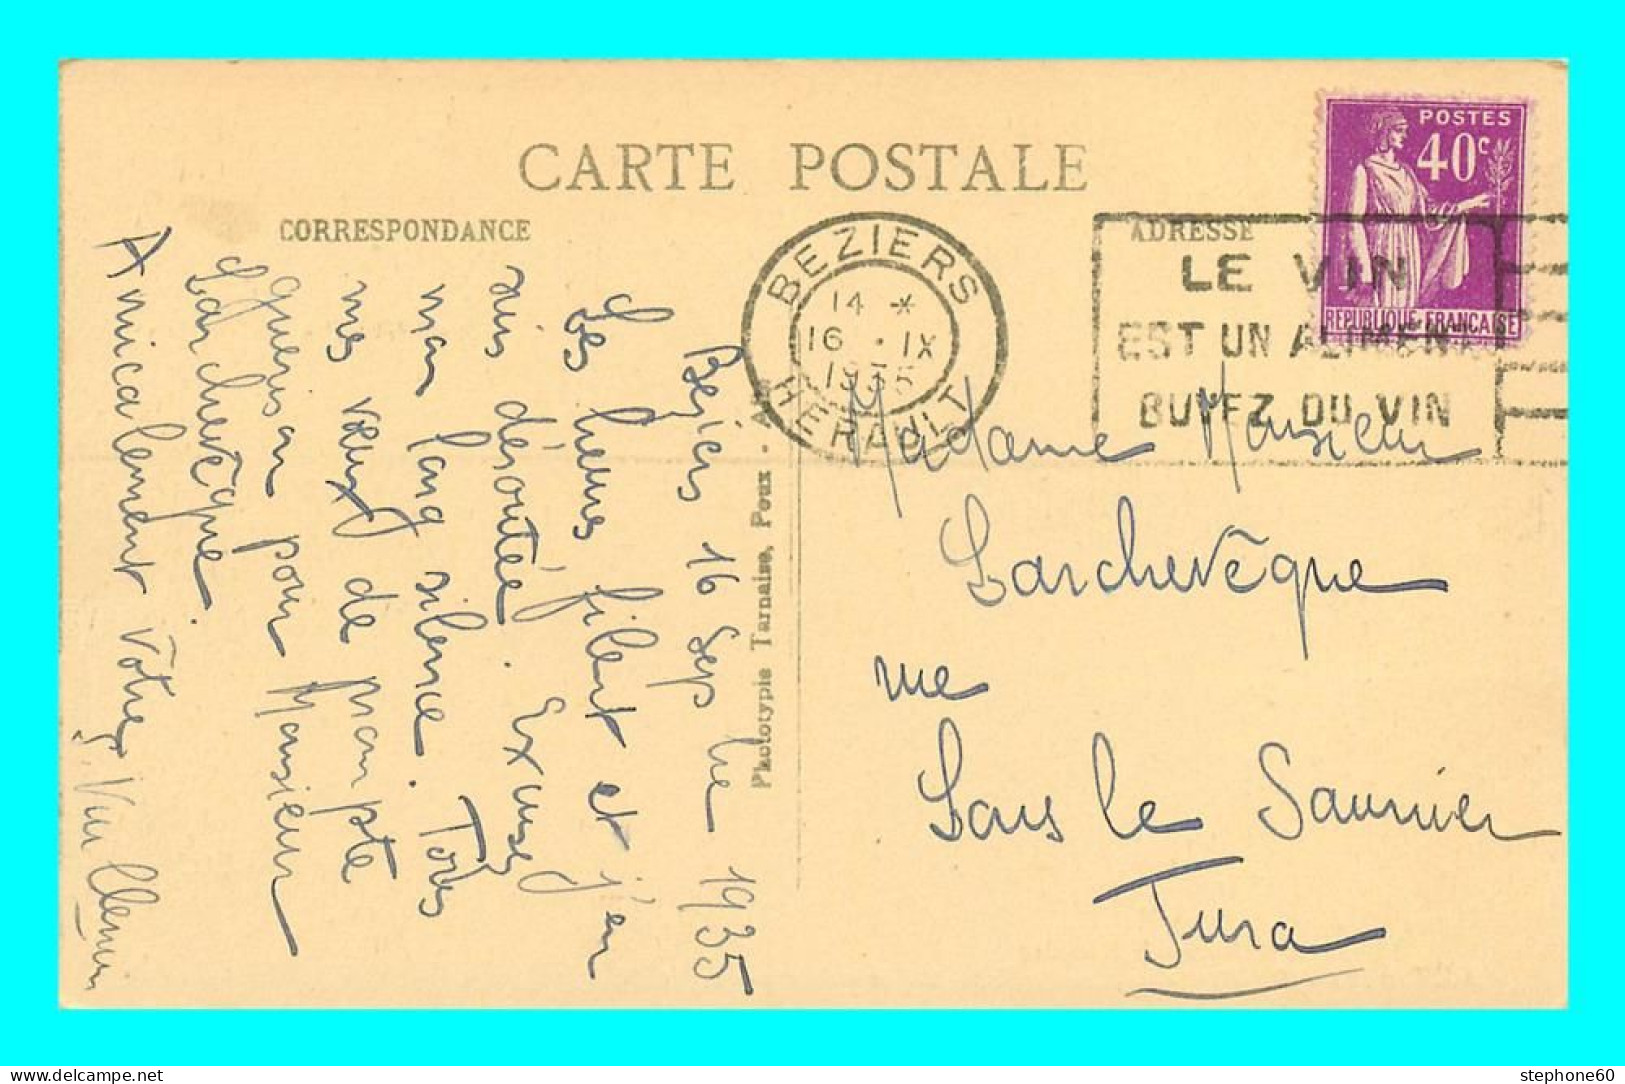 CARTE POSTALE
CORRESPONDANCE
ADRESSE
POSTES
40c
REPUBLIQUE FRANCAISE
BEZIERS
14 *
16 . IX
1935
HERAULT
LE VIN
EST UN ALIMENT
BUVEZ DU VIN
Phototypie Tarnaise, Poux - Albi
Béziers 16 Sep bre 1935
Les heures filent et j'en
suis désoutée. Excusez
mon long silence. Tous
mes vœux de prompte
guérison pour Monsieur
Larchevêque.
Amicalement vôtre,
Madame Monsieur
Larchevêque
rue
Lons le Saunier
Jura
stephone60